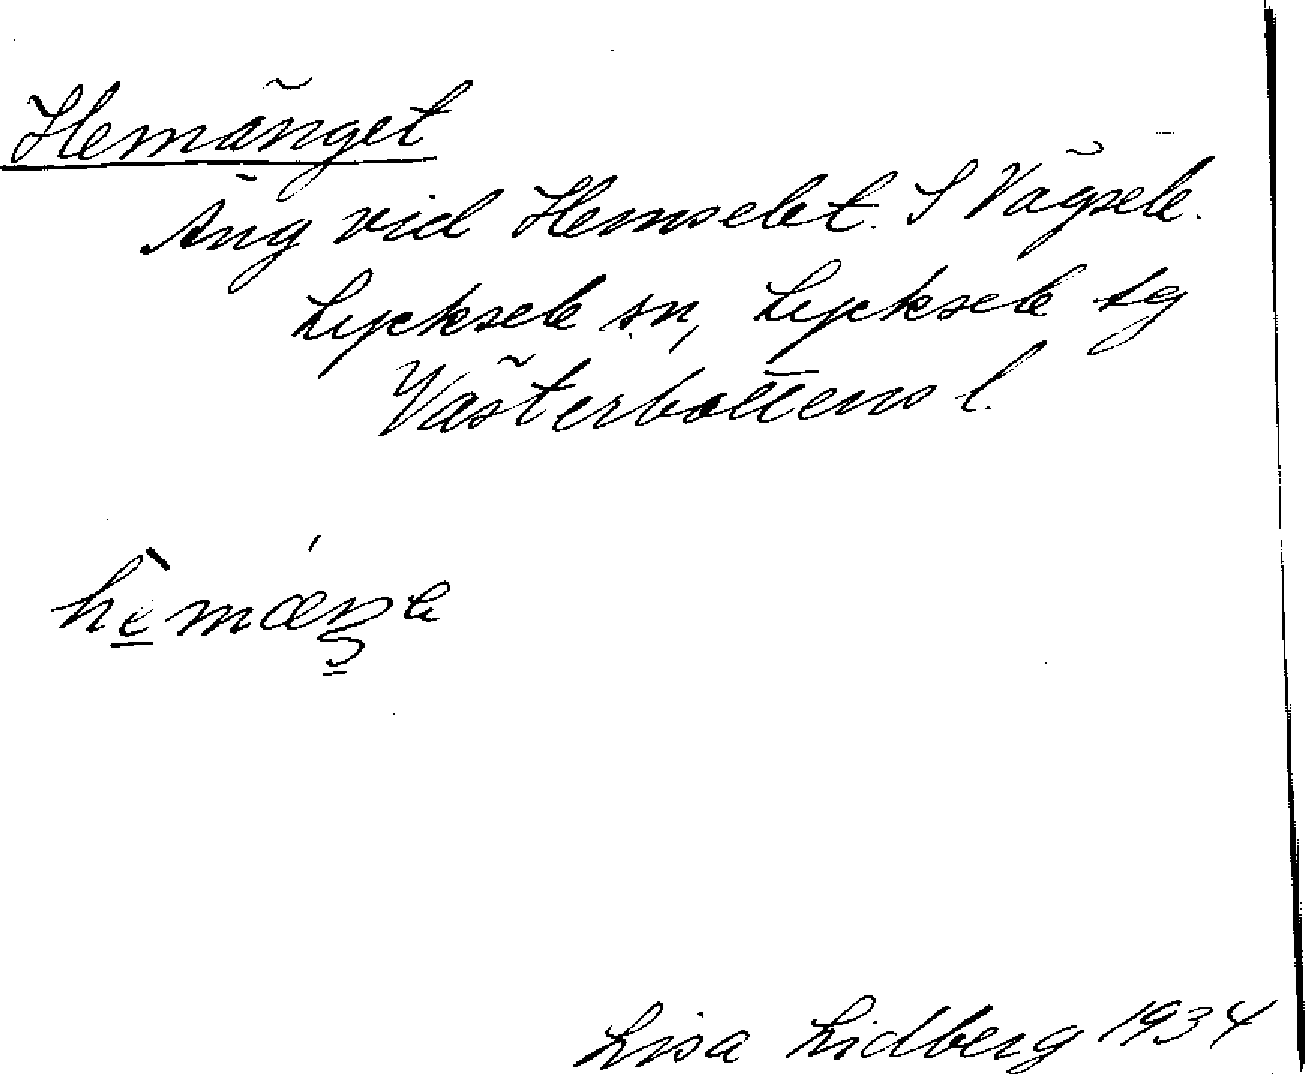 Hemänget
Äng vid Hemselet. S Vägsele.
Lycksele sn, Lycksele tg
Västerbottens l.
Lisa Lidberg 1934